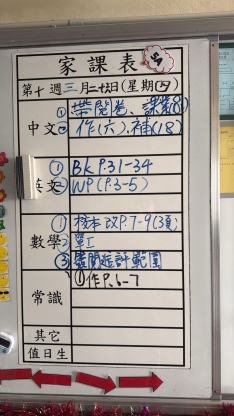 家課表
5A
第十週三月二十七日(星期四)
中文
①帶閱卷、課業(8)
②作(六)、補(18)
英文
①BK P.31-34
②WP(P.3-5)
數學
①校本改P.7-9(3頁)
②單工
③
常識
①作P.6-7
其它
值日生